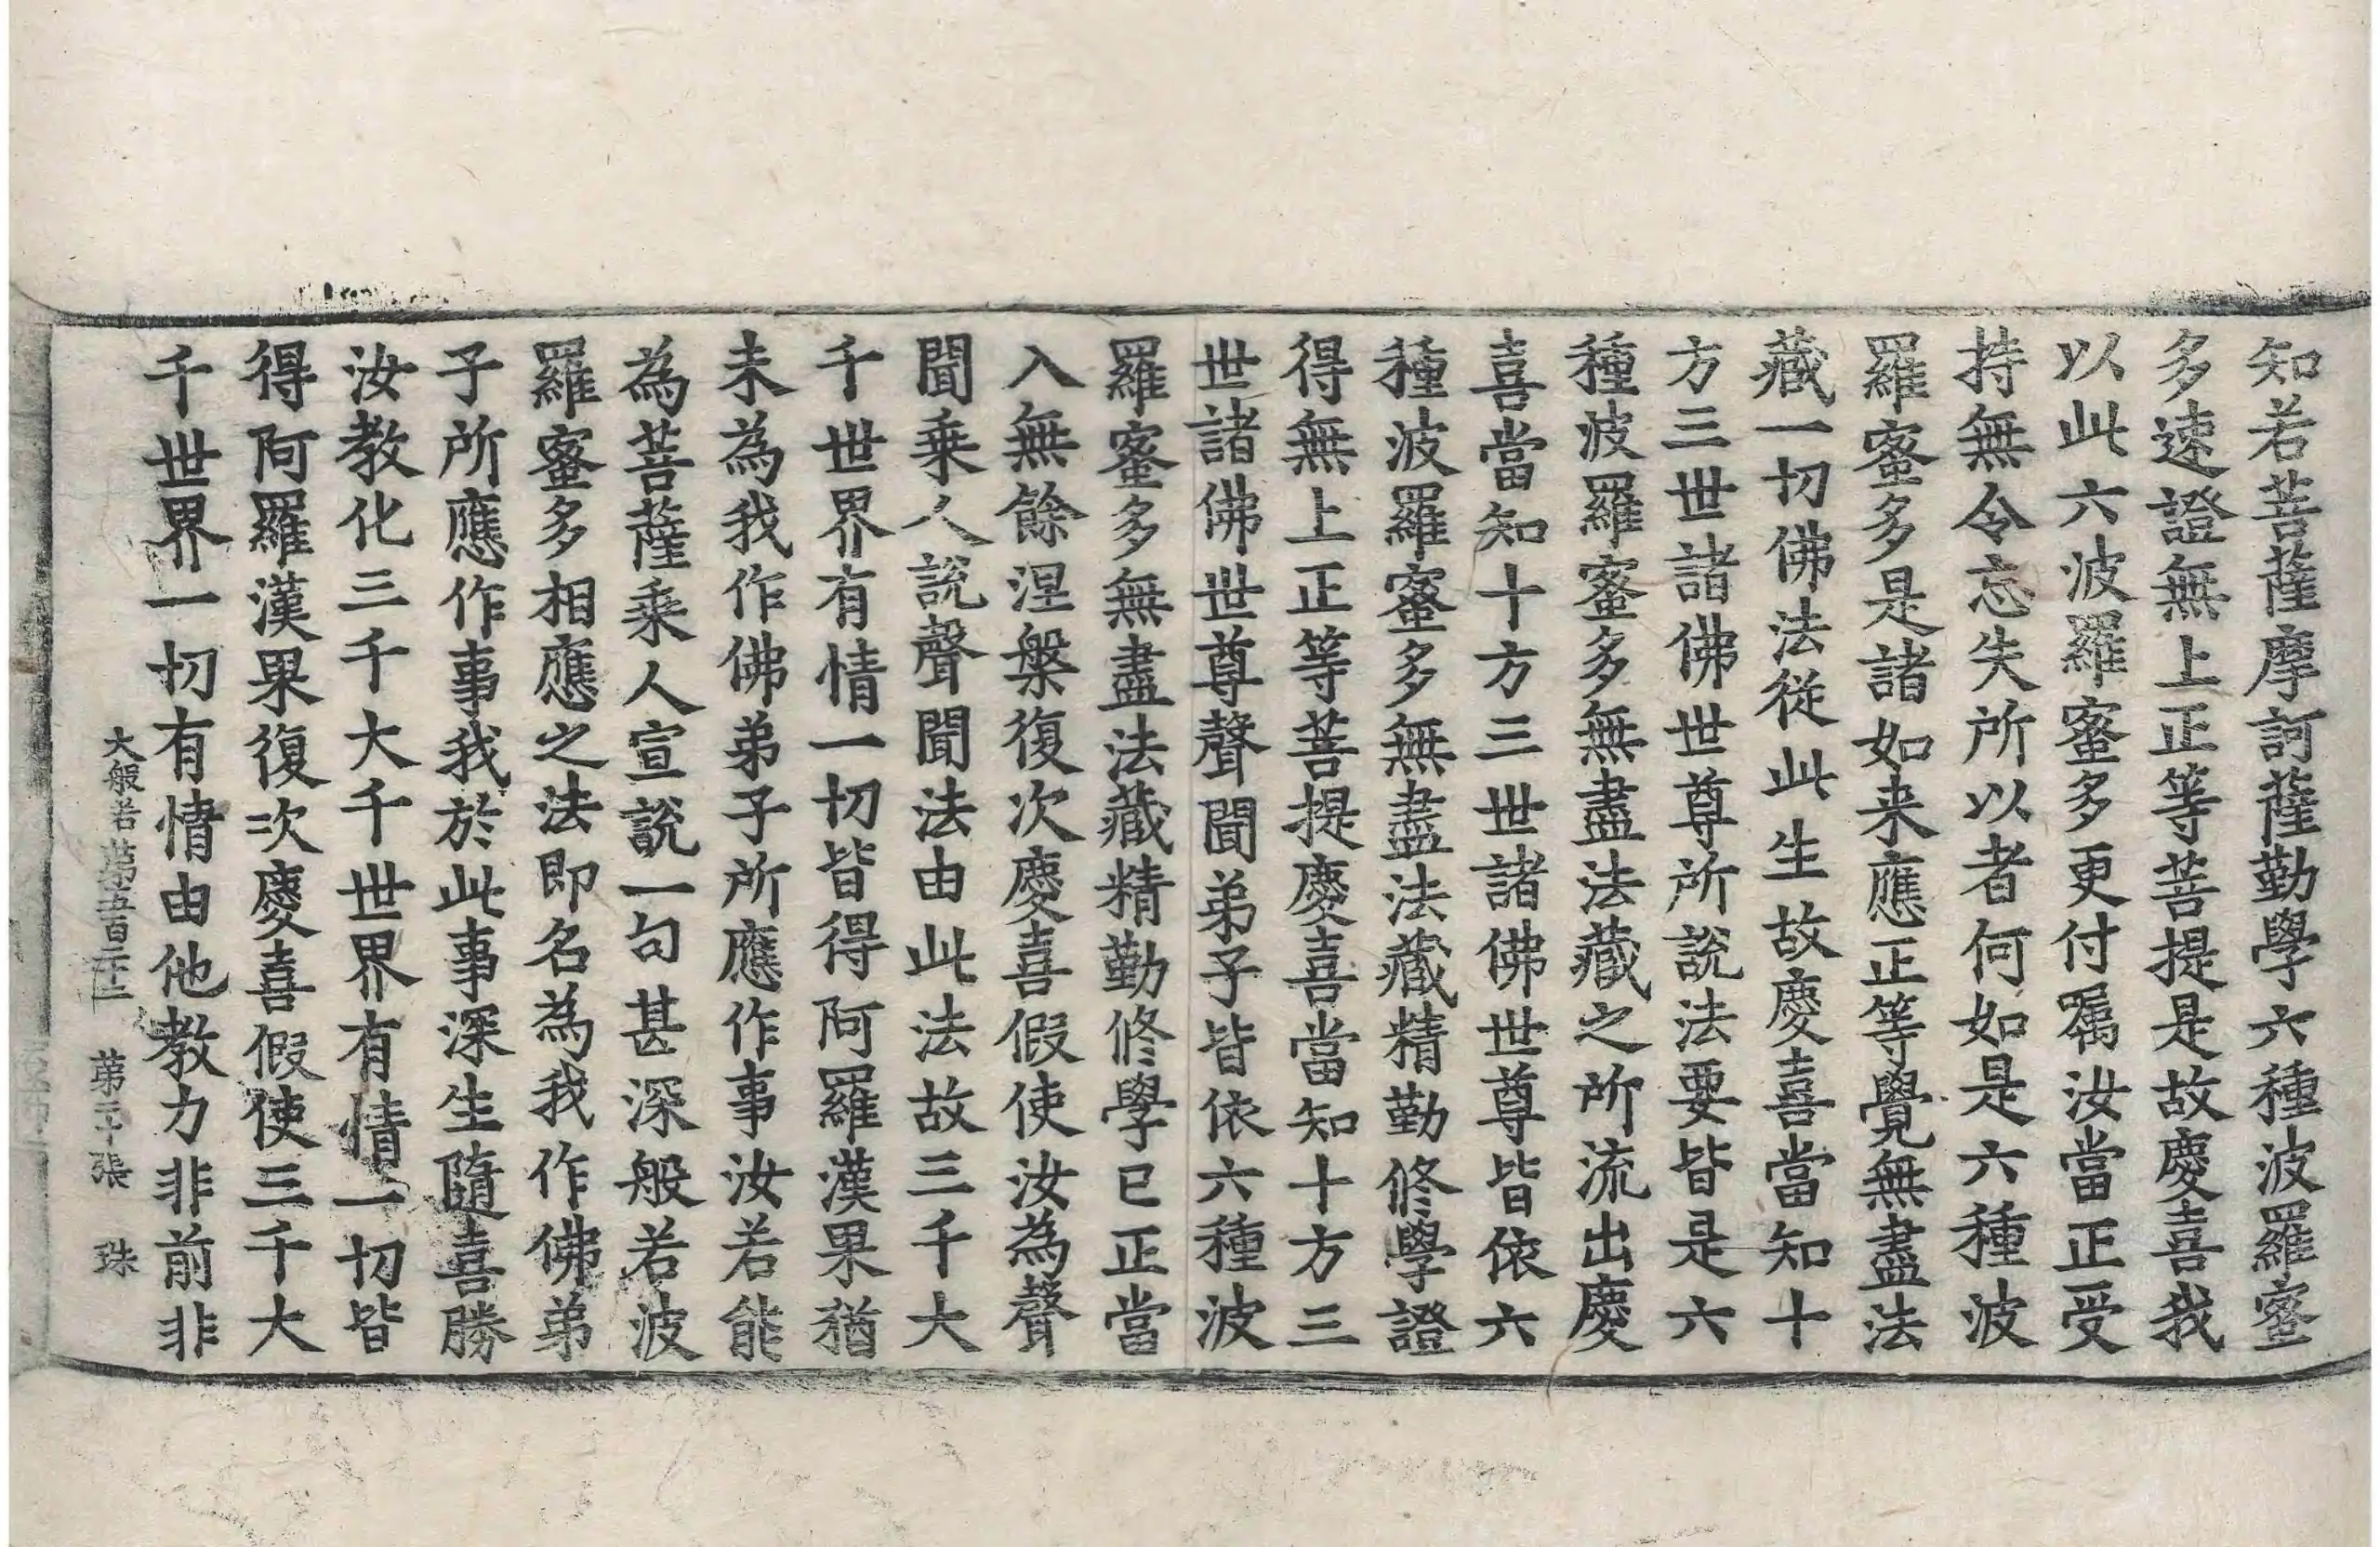 知若菩薩摩訶薩勤學六種波羅蜜
多速證無上正等菩提是故慶喜我
以此六波羅蜜多更付囑汝當正受
持無令忘失所以者何如是六種波
羅蜜多是諸如来應正等覺無盡法
藏一切佛法從此生故慶喜當知十
方三世諸佛世尊所說法要皆是六
種波羅蜜多無盡法藏之所流出慶
喜當知十方三世諸佛世尊皆依六
種波羅蜜多無盡法藏精勤修學證
得無上正等菩提慶喜當知十方三
世諸佛世尊聲聞弟子皆依六種波
羅蜜多無盡法藏精勤修學已正當
入無餘涅槃復次慶喜假使汝為聲
聞乗人說聲聞法由此法故三千大
千世界有情一切皆得阿羅漢果猶
未為我作佛弟子所應作事汝若能
為菩薩乗人宣說一句甚深般若波
羅蜜多相應之法即名為我作佛弟
子所應作事我於此事深生隨喜勝
汝教化三千大千世界有情一切皆
得阿羅漢果復次慶喜假使三千大
千世界一切有情由他教力非前非
大般若 第五百 第二十張 珠